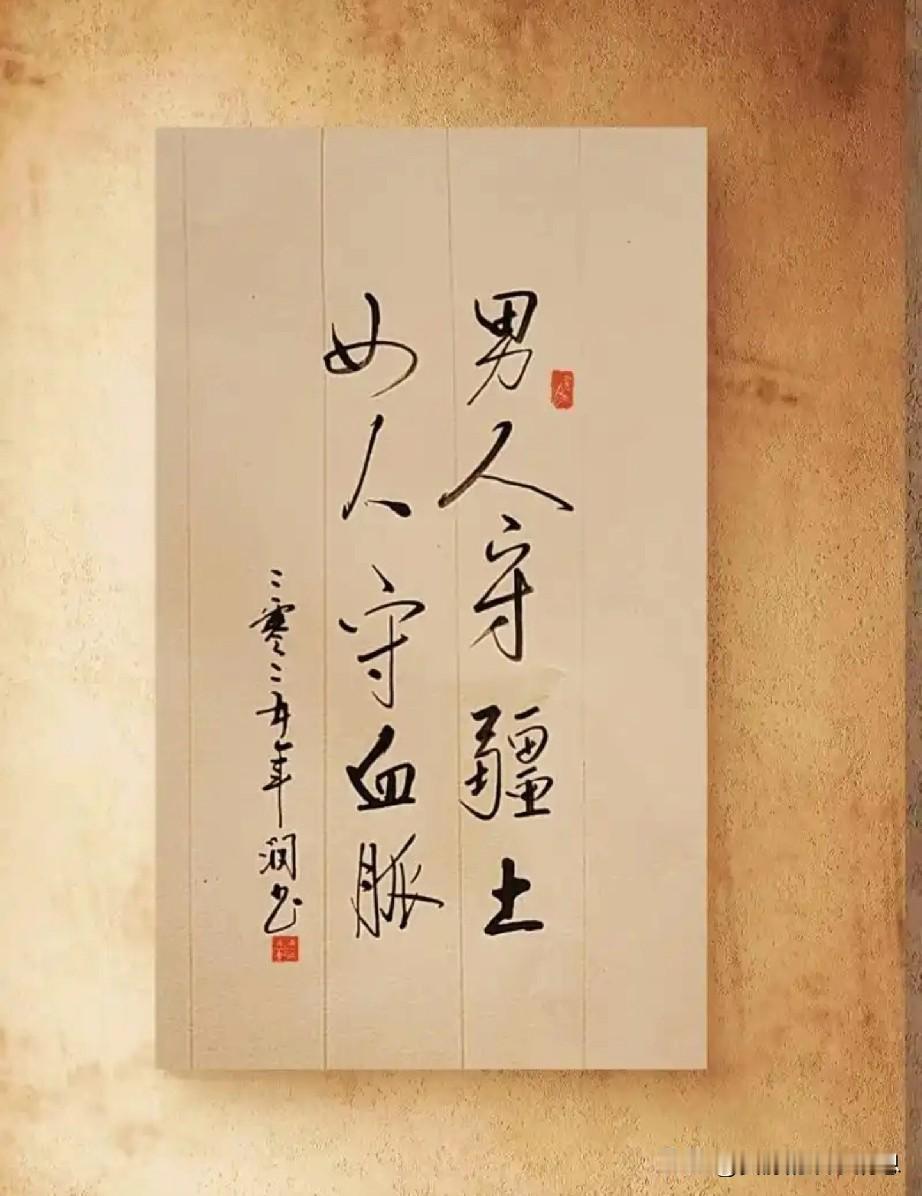 男人守疆土
女人守血脈
二零二五年 润书